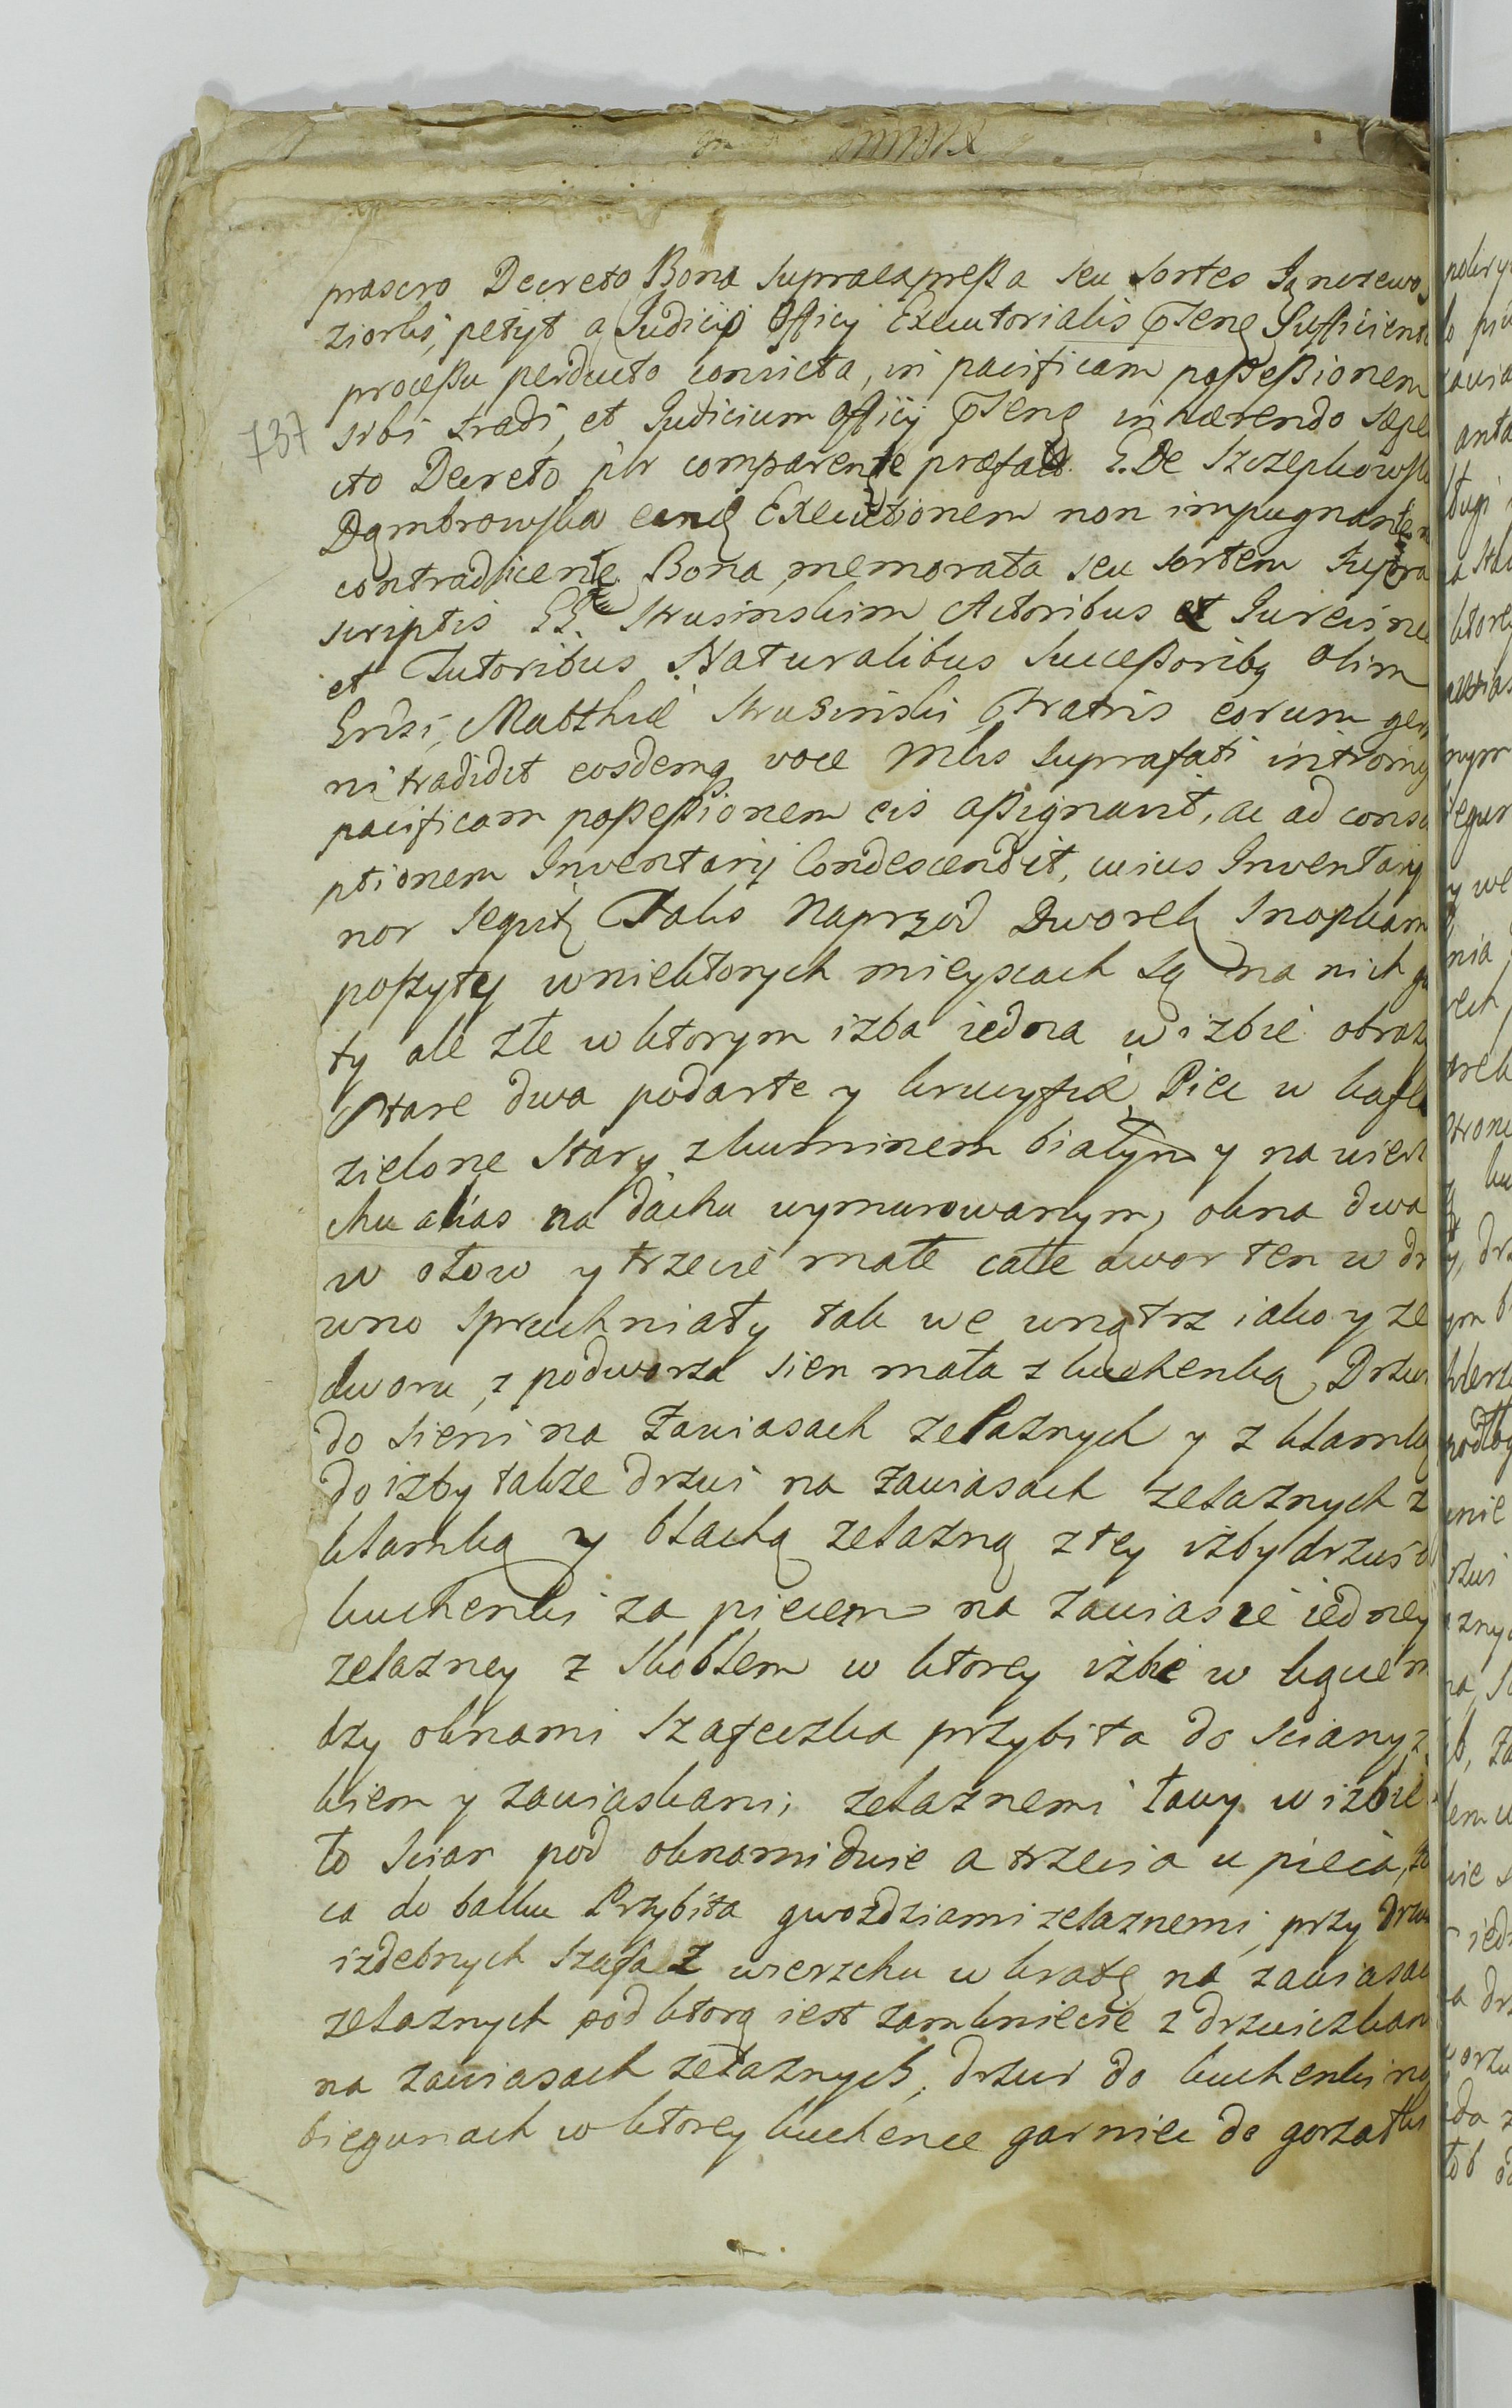 prascro Decreto Bona Supraexpreßa seu Sortes
ziorki, petyt a Judicio Officy Executorialis Pſens Sufficient
proceßu perducto convicta, in pacificam poßeßionem
sibi tradi, et Judicium Officij Pſens inhærendo Sæpe
cto Decreto plr comparente præfata G. De Szczepkowsk
Dąmbrowska eamq Executionem non impugnante
contradicente Bona memorata seu Sortem Supra
scriptis GG. Krusinskim Actoribus et
et Tutoribus Naturalibus Succeßoribq olim
Grdsi, Matthiæ Krusinski Fratris eorum ger
ni tradidit eosdemq voce Mlis Suprafati intromi
pacificam poßeßionem eis aßignavit, ac ad cons
ptionem Inventarij Condescendit, cuius Inventarij
nor Seqvitq Talis Naprzod Dworek Snopkam
poszyty wniektorych mieyscach Są na nich
ty ale złe w ktorym izba iedna w izbie obraz
Stare dwa podarte y krucyfix, Piec w kafle
zielone Stary zkuminem białym y na wierz
chu alias na dachu wymurowanym, okna dwa
w ołow y trzecie małe całe dwor ten w dr
wno Spruchniały tak we wnątrz iako y ze
dworu, z podworza Sien mała z kuchenką, Drzwi
do Sieni na Zawiasach zelaznych y z klamką
do izby takze drzwi na zawiasach zelaznych z
klamką y blachą zelazną z tey izby drzwi d
kuchenki za piecem na zawiasie iedney
zelazney z Skoblem w ktorey izbie w kącie m
dzy oknami Szafeczka przybita do Sciany z
kiem y zawiaskami zelaznemi Ławy w izbie
to Scian pod oknami dwie a trzecia u pieca,
ca do balku Przybita gwozdziami zelaznemi, przy Drzw
izdebnych Szafa Z wierzchu w kratę na zawiasac
zelaznych pod ktorą iest zamkniecie z drzwiczkam
na zawiasach zelaznych, drzwi do kuchenki na
biegunach w ktorey kuchence garniec do gorzałki
737